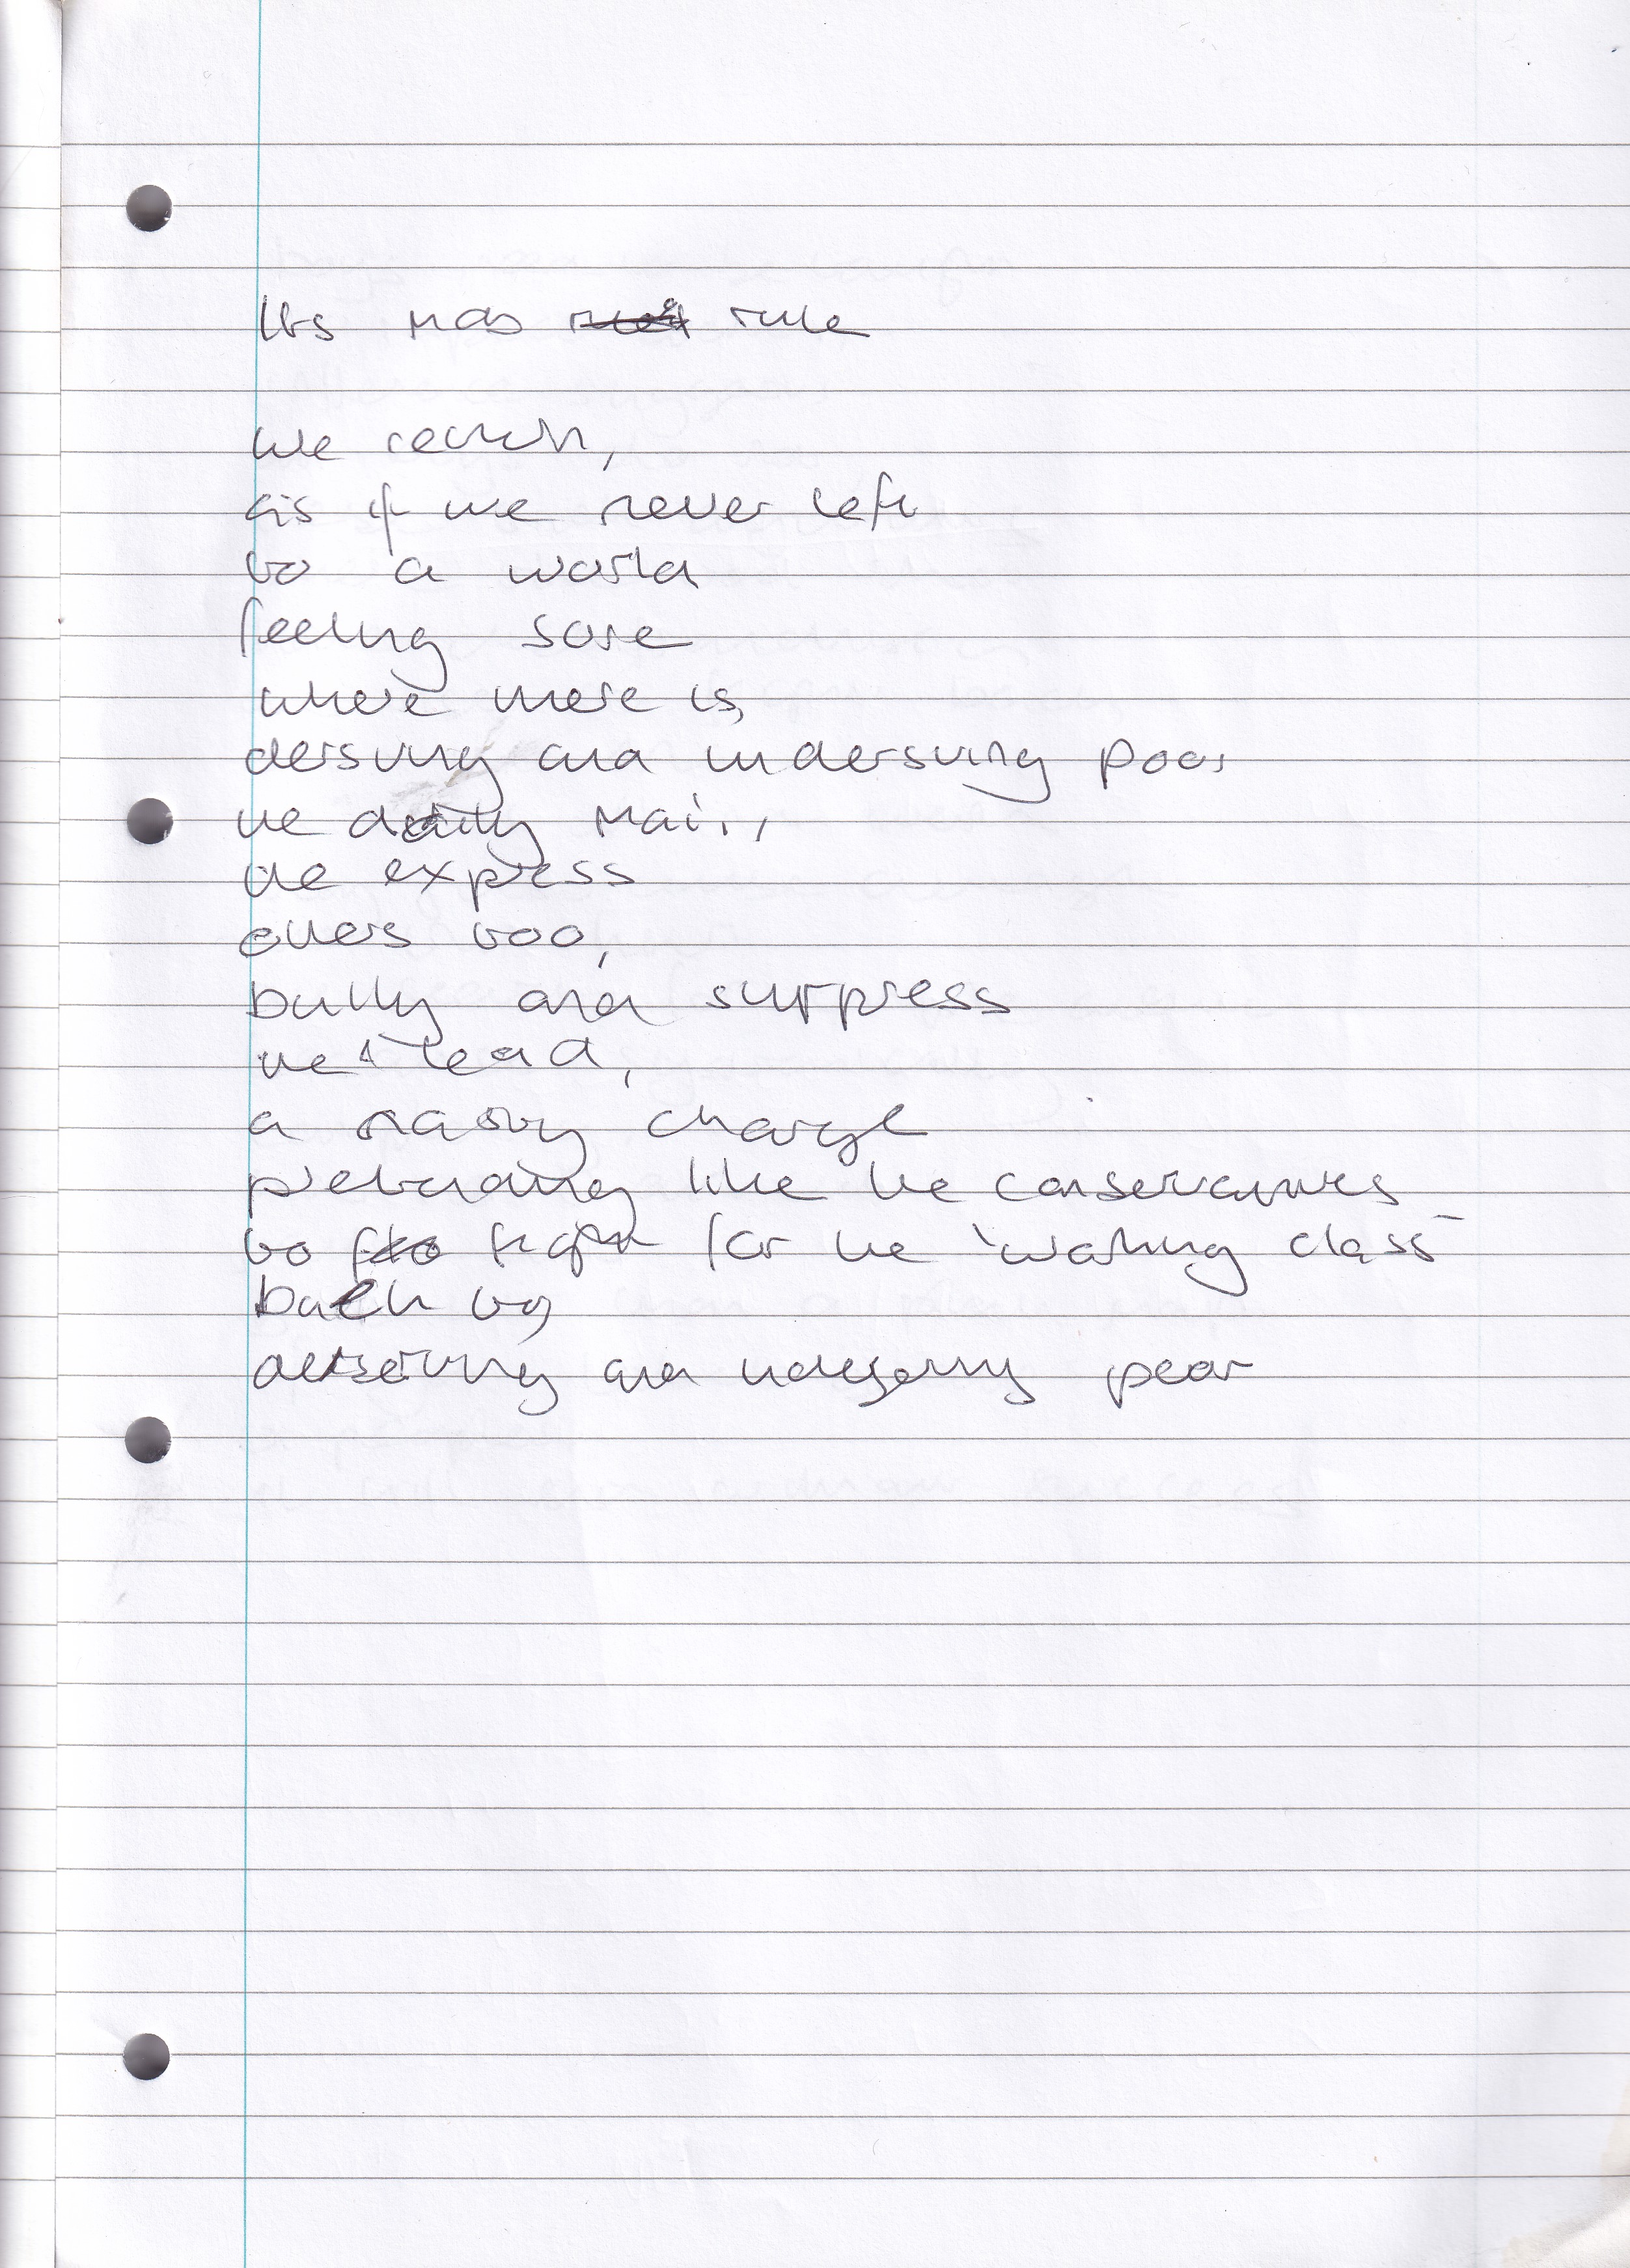 Its mob rule
We return,
as if we never left
to a world
feeling sore
where there is,
dersving and undersving poor
the daily Mail,
the express
others too,
bully and suppress
the lead,
a nasty charge
pretending like the conservatives
to fight for the 'working class'
back to
deserving and undeserving poor